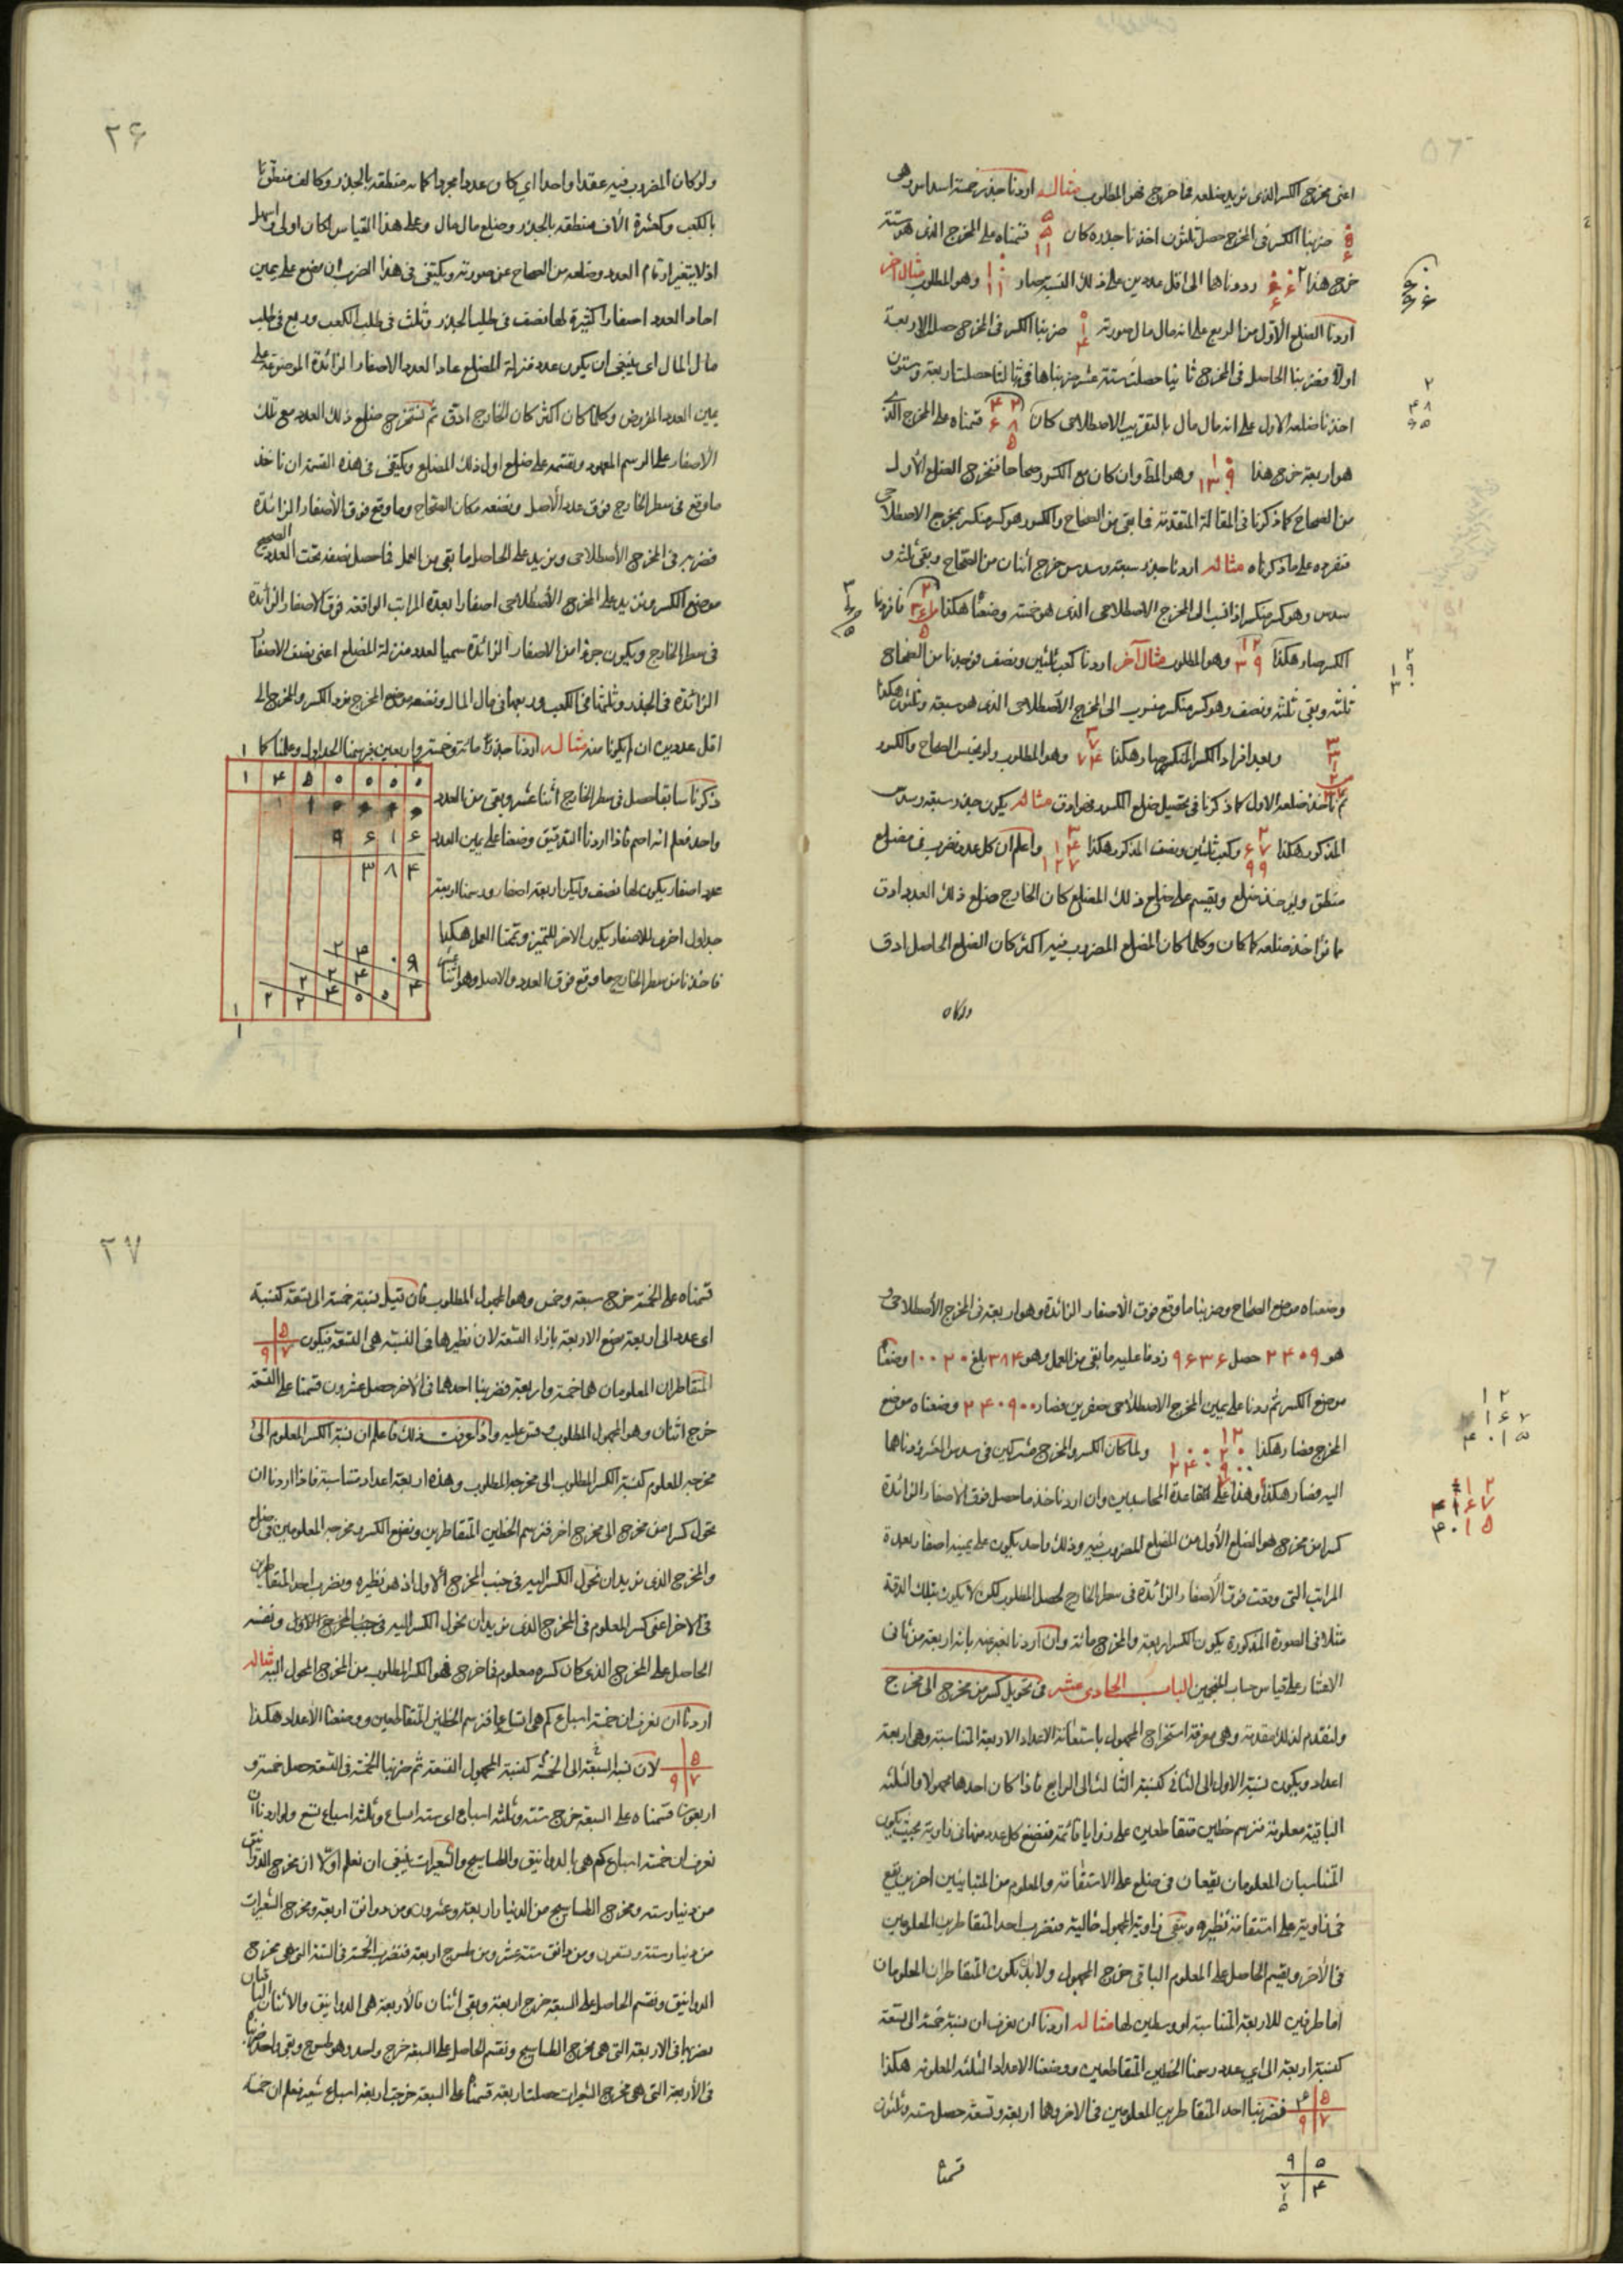 اعنی مخرج الکسر الذی نرید ضلعه فما خرج فهو المطلوب مثاله اردنا جذر خمسة اسداس وهی
ضربنا الکسر فی المخرج حصل ثلثون اخذنا جذره کان قسمناه علی المخرج الذی هو ستة
خرج هذا رددناها الی اقل عددین علی ذلک النسبة صار وهو المطلوب مثال آخر
اردنا الضلع الاول من الربع علی انه مال مال صورته ضربنا الکسر فی المخرج حصل الاربعة
اولا فضربنا الحاصل فی المخرج ثانیا حصلت ستة عشر ضربناها فی ثالثا حصلت اربعة وستون
اخذنا ضلعه الاول علی انه مال مال بالتقریب الاصطلاحی کان قسمناه علی المخرج الذی
هو اربعة خرج هذا وهو المط وان کان مع الکسور صحاحا فنخرج الضلع الاول
من الصحاح کما ذکرنا فی المقالة المتقدمة فما بقی من الصحاح والکسور هو کسر منکسر بمخرج الاصطلاحی
فنفرده علی ما ذکرناه مثاله اردنا جذر سبعة وسدس خرج اثنان من الصحاح وبقی ثلثة و
سدس وهو کسر منکسر اذا نسب الی المخرج الاصطلاحی الذی هو خمسة وضعنا هکذا فافردنا
الکسر صار هکذا وهو المطلوب مثال آخر اردنا کعب ثلثین ونصف فوجدنا من الصحاح
ثلثة وبقی ثلثة ونصف وهو کسر منکسر منسوب الی المخرج الاصطلاحی الذی هو سبعة وثلثون هکذا
وبعد افراد الکسر المنکسر صار هکذا وهو المطلوب ولو یجنس الصحاح والکسور
ثم ناخذ ضلعه الاول کما ذکرنا فی تحصیل ضلع الکسور فهو ادق مثاله یکون جذر سبعة وسدس
المذکور هکذا وکعب ثلثین ونصف المذکور هکذا واعلم ان کل عدد نضرب فی مضلع
منطق ویؤخذ ضلع ویقسم علی ضلع ذلک المضلع کان الخارج ضلع ذلک العدد ادق
مما نؤاخذ ضلعه کما کان وکلما کان المضلع المضروب فیه اکثر کان الضلع الحاصل ادق
ولو کان
۲۶
ولو کان المضروب فیه عقدا واحدا ای کان عددا مجردا کمائة منطقة بالجذر وکالف منطق
بالکعب وکعشرة آلاف منطقة بالجذر وضلع مال مال وعلی هذا القیاس لکان اولی واسهل
اذ لا یتغیر ارقام العدد وضلعه من الصحاح عن صورته ویکتفی فی هذا الضرب ان نضع علی یمین
احاد العدد اصفارا کثیرة لها نصف فی طلب الجذر وثلث فی طلب الکعب وربع فی طلب
مال المال ای ینبغی ان یکون عدد منزلة المضلع عاد العدد الاصفار الزائدة الموضوعة علی
یمین العدد المفروض وکلما کان اکثر کان الخارج ادق ثم نستخرج ضلع ذلک العدد مع تلک
الاصفار علی الرسم المعهود ونقسمه علی ضلع اول ذلک المضلع ویکتفی فی هذه القسمة ان ناخذ
ما وقع فی سطر الخارج فوق عدد الاصل ونضعه مکان الصحاح وما وقع فوق الاصفار الزائدة
فنضربه فی المخرج الاصطلاحی ونزید علی الحاصل ما بقی من العمل فما حصل نضعه تحت العدد الصحیح
موضع الکسر ونزید علی المخرج الاصطلاحی اصفارا بعدة المراتب الواقعة فوق الاصفار الزائدة
فی سطر الخارج ویکون جزؤا من الاصفار الزائدة سمیا لعدد منزلة المضلع اعنی نصف الاصفار
الزائدة فی الجذر وثلثها فی الکعب وربعها فی مال المال ونضعه موضع المخرج فنرد الکسر والمخرج الی
اقل عددین ان لم یکونا منه مثاله اردنا جذر مائة وخمسة واربعین فرسمنا الجداول وعملنا کما
ذکرنا سابقا حصل فی سطر الخارج اثنا عشر وبقی من العدد
واحد فعلم انه اصم فاذا اردنا التدقیق وضعنا علی یمین العدد
عدد اصفار یکون لها نصف ولیکن اربعة اصفار ورسمنا اربعة
جداول اخری للاصفار یکون الآخر للتمیز وتممنا العمل هکذا
فاخذنا من سطر الخارج ما وقع فوق العدد والاصل وهو اثنا عشر
۱ ۴ ۵ ۰ ۰ ۰ ۰
۹ ۶ ۱ ۶
۳ ۸ ۴
وضعناه موضع الصحاح وضربنا ما وقع فوق الاصفار الزائدة وهو اربعة فی المخرج الاصطلاحی و
هو ۲۴۰۹ حصل ۹۶۳۶ زدنا علیه ما بقی من العمل وهو ۳۸۴ بلغ ۱۰۰۲۰ وضعنا
موضع الکسر ثم زدنا علی یمین المخرج الاصطلاحی صفرین فصار ۲۴۰۹۰۰ وضعناه موضع
المخرج فصار هکذا ولما کان الکسر والمخرج مشترکین فی سدس العشر رددناها
الیه فصار هکذا وهذا علی القاعدة المحاسبین وان اردنا خذ ما حصل فوق الاصفار الزائدة
کسرا من مخرج هو الضلع الاول من المضلع المضروب فیه وذلک واحد یکون علی یمینه اصفار بعدة
المراتب التی وقعت فوق الاصفار الزائدة فی سطر الخارج لحصل المطلوب لکن لا یکون بتلک الدقة
مثلا فی الصورة المذکورة یکون الکسر اربعة والمخرج مائة وان اردنا نعبر عنه بانه اربعة من ثانی
الاعشار علی قیاس حساب المنجمین الباب الحادی عشر فی تحویل کسر من مخرج الی مخرج
ولنقدم لذلک مقدمة وهی معرفة استخراج المجهول باستعانة الاعداد الاربعة المتناسبة وهی اربعة
اعداد ویکون نسبة الاول الی الثانی کنسبة الثالث الی الرابع فاذا کان احدها مجهولا والثلثة
الباقیة معلومة فنرسم خطین متقاطعین علی زوایا قائمة فنضع کل عدد منها فی زاویة بحیث یکون
المتناسبان المعلومان یقعان فی ضلع علی الاستقامة والمعلوم من المتباینین اخریین یقع
فی زاویة علی استقامة نظیره ویبقی زاویة المجهول خالیة فنضرب احد المتقاطرین المعلومین
فی الآخر ونقسم الحاصل علی المعلوم الباقی خرج المجهول ولا بد ان یکون المتقاطران المعلومان
اما طرفین للاربعة المتناسبة او وسطین لها مثاله اردنا ان نعرف ان نسبة خمسة الی تسعة
کنسبة اربعة الی ای عدد رسمنا الخطین المتقاطعین ووضعنا الاعداد الثلثة المعلومة هکذا
فضربنا احد المتقاطرین المعلومین فی الآخر وهما اربعة وتسعة حصل ستة وثلثون
قسمنا
۲۷
قسمناه علی الخمسة خرج سبعة وخمس وهو المجهول المطلوب فان قیل نسبة خمسة الی تسعة کنسبة
ای عدد الی اربعة نضع الاربعة بازاء التسعة لان نظیرها فی النسبة هی التسعة فیکون
المتقاطران المعلومان هما خمسة واربعة فضربنا احدهما فی الآخر حصل عشرون قسمنا علی التسعة
خرج اثنان وهو المجهول المطلوب وقس علیه واذا عرفت ذلک فاعلم ان نسبة الکسر المعلوم الی
مخرجه المعلوم کنسبة الکسر المطلوب الی مخرجه المطلوب وهذه اربعة اعداد متناسبة فاذا اردنا ان
نحول کسرا من مخرج الی مخرج اخر فنرسم الخطین المتقاطرین ونضع الکسر ومخرجه المعلومین فی ضلع
والمخرج الذی نرید ان نحول الکسر الیه فی جنب المخرج الاول اذ هو نظیره ونضرب احد المتقاطرین
فی الآخر اعنی کسر المعلوم فی المخرج الذی نرید ان نحول الکسر الیه فی جنب المخرج الاول ونقسم
الحاصل علی المخرج الذی کان کسره معلوم فما خرج فهو الکسر المطلوب من المخرج المحول الیه مثاله
اردنا ان نعرف ان خمسة اسباع کم هی اتساعا فنرسم الخطین المتقاطعین ووضعنا الاعداد هکذا
لان نسبة السبعة الی الخمسة کنسبة المجهول التسعة ثم ضربنا الخمسة فی التسعة حصل خمسة و
اربعون قسمناه علی السبعة خرج ستة وثلثة اسباع ای ستة اتساع وثلثة اسباع تسع ولو اردنا ان
نعرف ان خمسة اسباع کم هی بالدوانیق والطساسیج والشعیرات ینبغی ان نعلم اولا ان مخرج الدوانیق
من دینار ستة ومخرج الطساسیج من الدینار اربعة وعشرون ومن دوانق اربعة ومخرج الشعیرات
من دینار ستة وتسعون ومن دانق ستة عشر ومن طسوج اربعة فنضرب الخمسة فی الستة التی هی مخرج
الدوانیق ونقسم الحاصل علی السبعة خرج اربعة وبقی اثنان فالاربعة هی الدوانیق والاثنان الباقیان
نضربها فی الاربعة التی هی مخرج الطساسیج ونقسم الحاصل علی السبعة خرج واحد وهو طسوج وبقی واحد ضربناه
فی الاربعة التی هی مخرج الشعیرات حصلت اربعة قسمنا علی السبعة خرجت اربعة اسباع شعیر فعلم ان خمسة